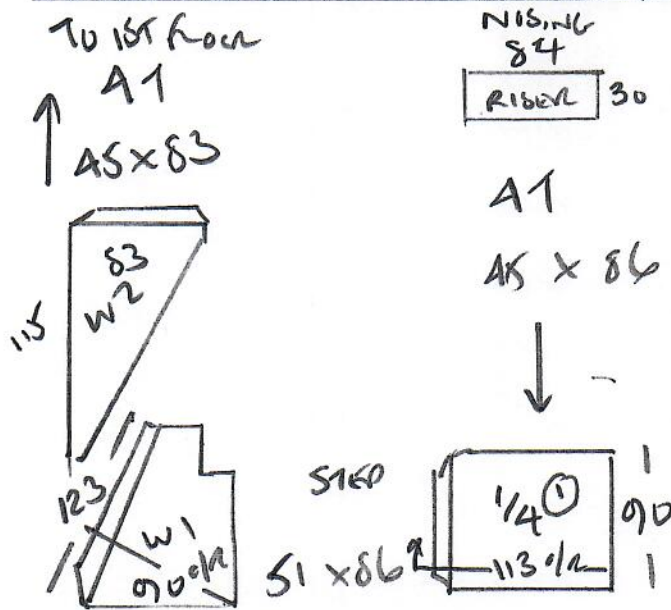 TO 1ST FLOOR
A1
45 x 83
83
W2
115
123
W1
90 O/R
NOSING
84
RISER 30
A1
45 x 86
STEP
51 x 86
1/4 1
113 O/R
90